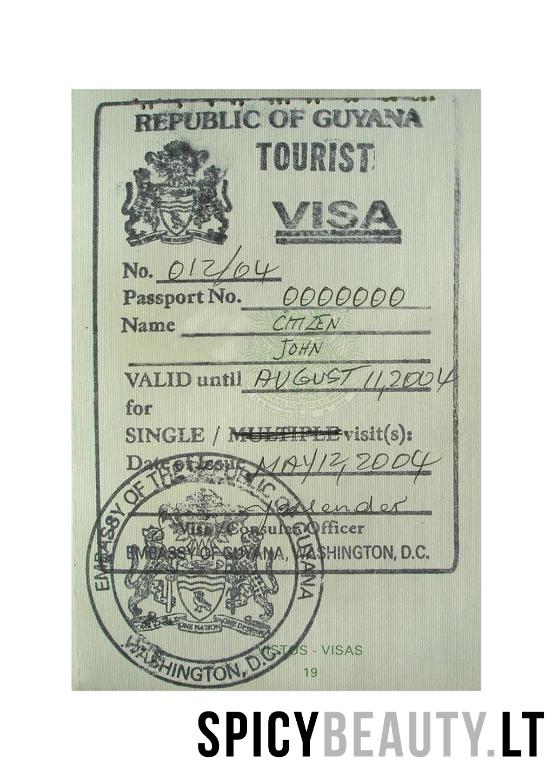 REPUBLIC OF GUYANA
TOURIST
VISA
No. 012/04
Passport No. 0000000
Name CITIZEN
JOHN
VALID until AUGUST 11, 2004
for
SINGLE / MULTIPLE visit(s):
Date of Issue MAY 12, 2004
Visa / Consular Officer
EMBASSY OF GUYANA, WASHINGTON, D.C.
EMBASSY OF THE REPUBLIC OF GUYANA
ONE NATION ONE DESTINY
WASHINGTON, D.C.
VISTOS - VISAS
19
SPICYBEAUTY.LT